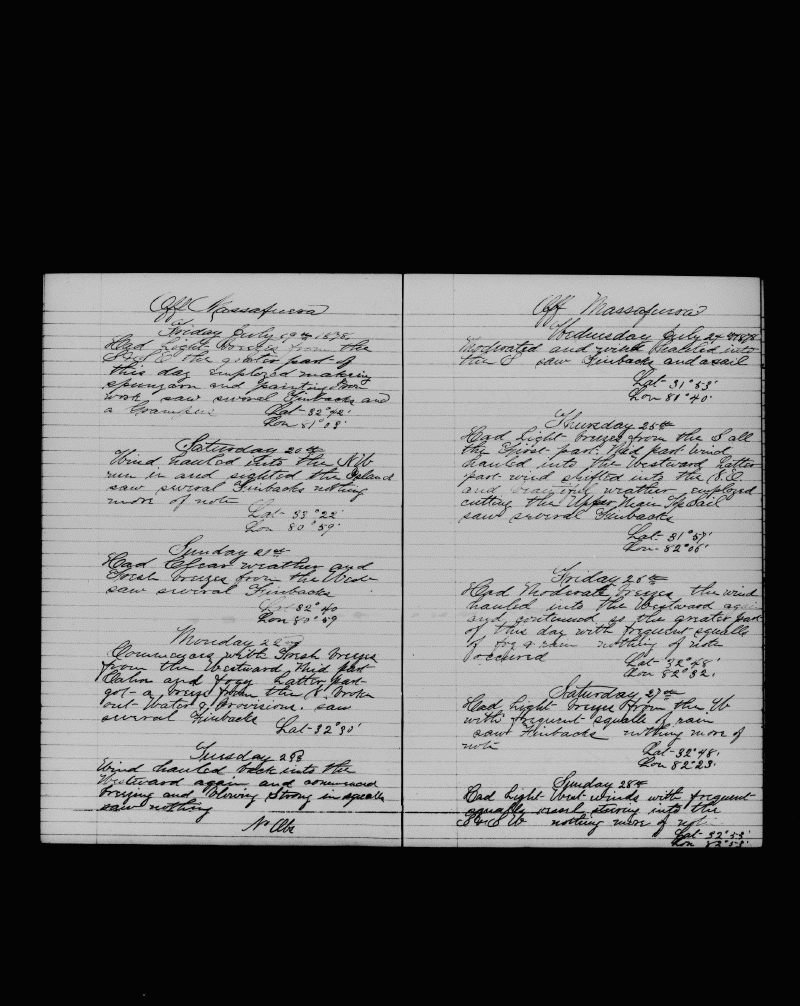 Off Massafuera
Friday July 19th 1878
Had Light breezes from the
the greater part of
this day employed making
spunyarn and painting Iron
work saw sevral Finbacks and
a Grampus Lat 32° 42'
Lon 81° 03'
Saturday 20th
Wind hauled into the NW
run in and sighted the Island
saw sevral Finbacks nothing
more of note
Lat 33° 22'
Lon 80° 59'
Sunday 21st
Had Clear weather and
Fresh breezes from the West
saw sevral Finbacks
Lat 32° 40
Lon 80° 59
Monday 22nd
Commences with Fresh breezes
from the Westward Mid part
Calm and foggy Latter part
got a breeze from the N. broke
out Water & Provisions. saw
sevral Finbacks
Lat 32° 30'
Tuesday 23
Wind hauled back into the
Westward again and commenced
breezing and blowing strong in squalls
saw nothing
No Obs
Off Massafuera
Wednesday July 24 1878
Moderated and wind hauled into
the S saw Finbacks and a sail
Lat 31° 53'
Lon 81° 40'
Thursday 25th
Had light breezes from the S all
the First part. Mid part Wind
hauled into the Westward Latter
part wind shifted into the S.E.
and weather employed
cutting the Upper Main TopSail
saw sevral Finbacks
Lat 31° 57'
Lon 82° 06'
Friday 26th
Had Moderate breezes the wind
hauled into the Westward again
and continued so the greater part
of this day with frequent squalls
of fog & rain nothing of note
occured Lat 32° 48'
Lon 82° 32'
Saturday 27th
Had Light breezes from the W
with frequent squalls of rain
saw Finbacks nothing more of
note
Lat 32° 48'
Lon 82° 23'
Sunday 28th
Had Light West winds with frequent
squalls vessel steering into the
nothing more of note
Lat 32° 53'
Lon 82° 53'